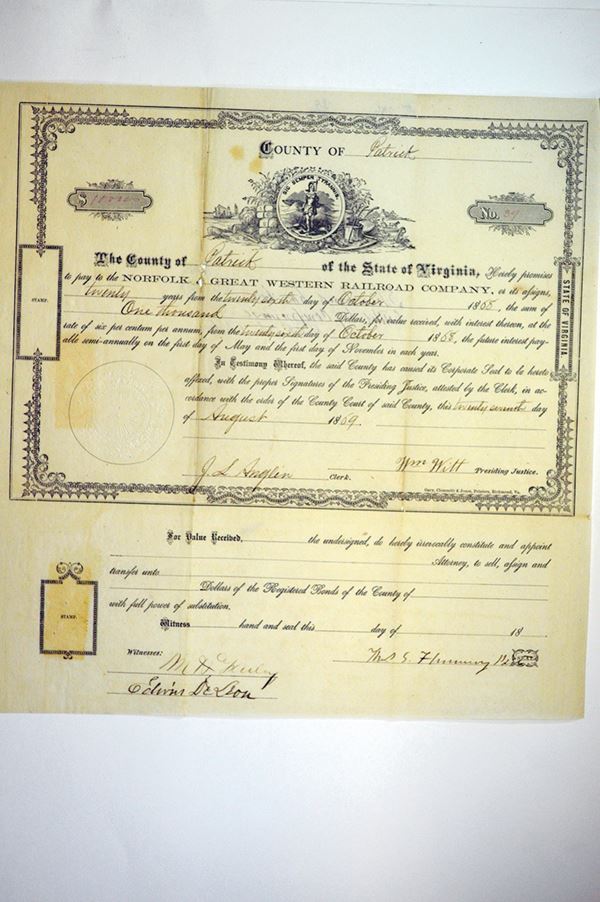 COUNTY OF Patrick
SIC SEMPER TYRANNIS
$ 1000.00
No.
The County of Patrick of the State of Virginia, Hereby promises
to pay to the NORFOLK & GREAT WESTERN RAILROAD COMPANY, or its assigns,
twenty years from the twenty sixth day of October 1868, the sum of
One thousand Dollars, for value received, with interest thereon, at the
rate of six per centum per annum, from the twenty sixth day of October 1868, the future interest pay-
able semi-annually on the first day of May and the first day of November in each year.
In Testimony Whereof, the said County has caused its Corporate Seal to be hereto
affixed, with the proper Signatures of the Presiding Justice, attested by the Clerk, in ac-
cordance with the order of the County Court of said County, this twenty seventh day
of August 1869.
J. S. Anglin Clerk. Wm Witt Presiding Justice.
Gary, Clemmitt & Jones, Printers, Richmond, Va.
STAMP.
STATE OF VIRGINIA
For Value Received, the undersigned, do hereby irrevocably constitute and appoint
Attorney, to sell, assign and
transfer unto
Dollars of the Registered Bonds of the County of
with full power of substitution.
Witness hand and seal this day of 18
STAMP.
Witnesses:
Edwin De Leon